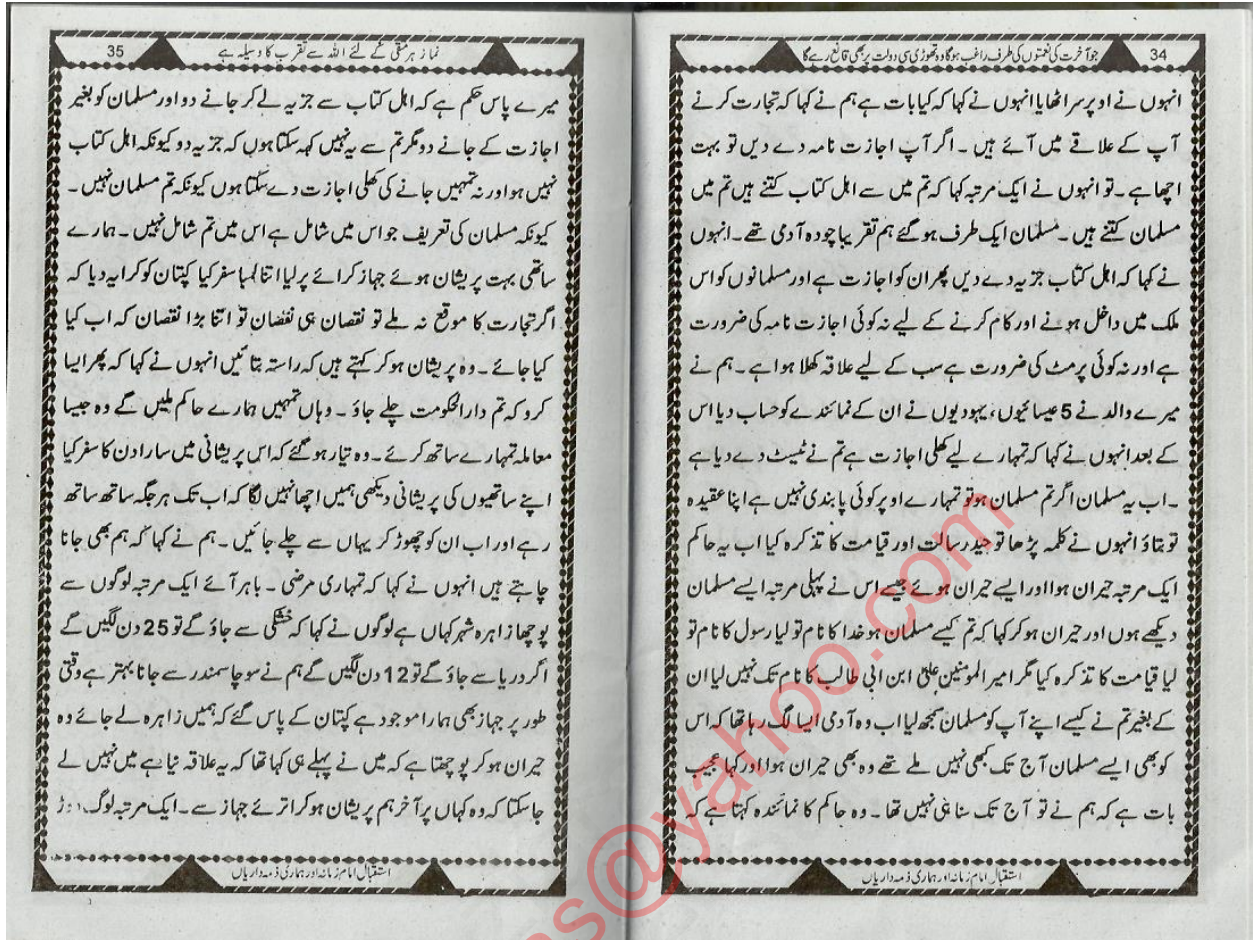 34
جو آخرت کی نعمتوں کی طرف راغب ہوگا وہ تھوڑی سی دولت پر بھی قانع رہے گا
انہوں نے اوپر سر اٹھایا انہوں نے کہا کہ کیا بات ہے ہم نے کہا کہ تجارت کرنے
آپ کے علاقے میں آئے ہیں ۔ اگر آپ اجازت نامہ دے دیں تو بہت
اچھا ہے ۔ تو انہوں نے ایک مرتبہ کہا کہ تم میں سے اہل کتاب کتنے ہیں تم میں
مسلمان کتنے ہیں ۔ مسلمان ایک طرف ہو گئے ہم تقریبا چودہ آدمی تھے ۔ انہوں
نے کہا کہ اہل کتاب جزیہ دے دیں پھر ان کو اجازت ہے اور مسلمانوں کو اس
ملک میں داخل ہونے اور کام کرنے کے لیے نہ کوئی اجازت نامہ کی ضرورت
ہے اور نہ کوئی پرمٹ کی ضرورت ہے سب کے لیے علاقہ کھلا ہوا ہے ۔ ہم نے
میرے والد نے 5 عیسائیوں، یہودیوں نے ان کے نمائندے کو حساب دیا اس
کے بعد انہوں نے کہا کہ تمہارے لیے کھلی اجازت ہے تم نے ٹیسٹ دے دیا ہے
۔ اب یہ مسلمان اگر تم مسلمان ہو تو تمہارے اوپر کوئی پابندی نہیں ہے اپنا عقیدہ
تو بتاؤ انہوں نے کلمہ پڑھا توحید رسالت اور قیامت کا تذکرہ کیا اب یہ حاکم
ایک مرتبہ حیران ہوا اور ایسے حیران ہوئے جیسے اس نے پہلی مرتبہ ایسے مسلمان
دیکھے ہوں اور حیران ہو کر کہا کہ تم کیسے مسلمان ہو خدا کا نام تو لیا رسول کا نام تو
لیا قیامت کا تذکرہ کیا مگر امیر المومنین علیؑ ابن ابی طالب کا نام تک نہیں لیا ان
کے بغیر تم نے کیسے اپنے آپ کو مسلمان سمجھ لیا اب وہ آدمی ایسا لگ رہا تھا کہ اس
کو بھی ایسے مسلمان آج تک کبھی نہیں ملے تھے وہ بھی حیران ہوا اور کہا عجیب
بات ہے کہ ہم نے تو آج تک سنا ہی نہیں تھا ۔ وہ حاکم کا نمائندہ کہتا ہے کہ
استقبال امام زمانہ اور ہماری ذمہ داریاں
35
نماز ہر متقی کے لئے اللہ سے تقرب کا وسیلہ ہے
میرے پاس حکم ہے کہ اہل کتاب سے جزیہ لے کر جانے دو اور مسلمان کو بغیر
اجازت کے جانے دو مگر تم سے یہ نہیں کہہ سکتا ہوں کہ جزیہ دو کیونکہ اہل کتاب
نہیں ہو اور نہ تمہیں جانے کی کھلی اجازت دے سکتا ہوں کیونکہ تم مسلمان نہیں ۔
کیونکہ مسلمان کی تعریف جو اس میں شامل ہے اس میں تم شامل نہیں ۔ ہمارے
ساتھی بہت پریشان ہوئے جہاز کرائے پر لیا اتنا لمبا سفر کیا کپتان کو کرایہ دیا کہ
اگر تجارت کا موقع نہ ملے تو نقصان ہی نقصان تو اتنا بڑا نقصان کہ اب کیا
کیا جائے ۔ وہ پریشان ہو کر کہتے ہیں کہ راستہ بتائیں انہوں نے کہا کہ پھر ایسا
کرو کہ تم دارالحکومت چلے جاؤ ۔ وہاں تمہیں ہمارے حاکم ملیں گے وہ جیسا
معاملہ تمہارے ساتھ کرئے ۔ وہ تیار ہو گئے کہ اس پریشانی میں سارا دن کا سفر کیا
اپنے ساتھیوں کی پریشانی دیکھی ہمیں اچھا نہیں لگا کہ اب تک ہر جگہ ساتھ ساتھ
رہے اور اب ان کو چھوڑ کر یہاں سے چلے جائیں ۔ ہم نے کہا کہ ہم بھی جانا
چاہتے ہیں انہوں نے کہا کہ تمہاری مرضی ۔ باہر آئے ایک مرتبہ لوگوں سے
پوچھا زاہرہ شہر کہاں ہے لوگوں نے کہا کہ خشکی سے جاؤ گے تو 25 دن لگیں گے
اگر دریا سے جاؤ گے تو 12 دن لگیں گے ہم نے سوچا سمندر سے جانا بہتر ہے وقتی
طور پر جہاز بھی ہمارا موجود ہے کپتان کے پاس گئے کہ ہمیں زاہرہ لے جائے وہ
حیران ہو کر پوچھتا ہے کہ میں نے پہلے ہی کہا تھا کہ یہ علاقہ نیا ہے میں نہیں لے
جا سکتا کہ وہ کہاں پر آخر ہم پریشان ہو کر اترئے جہاز سے ۔ ایک مرتبہ لوگ دوڑ
استقبال امام زمانہ اور ہماری ذمہ داریاں
s@yahoo.com